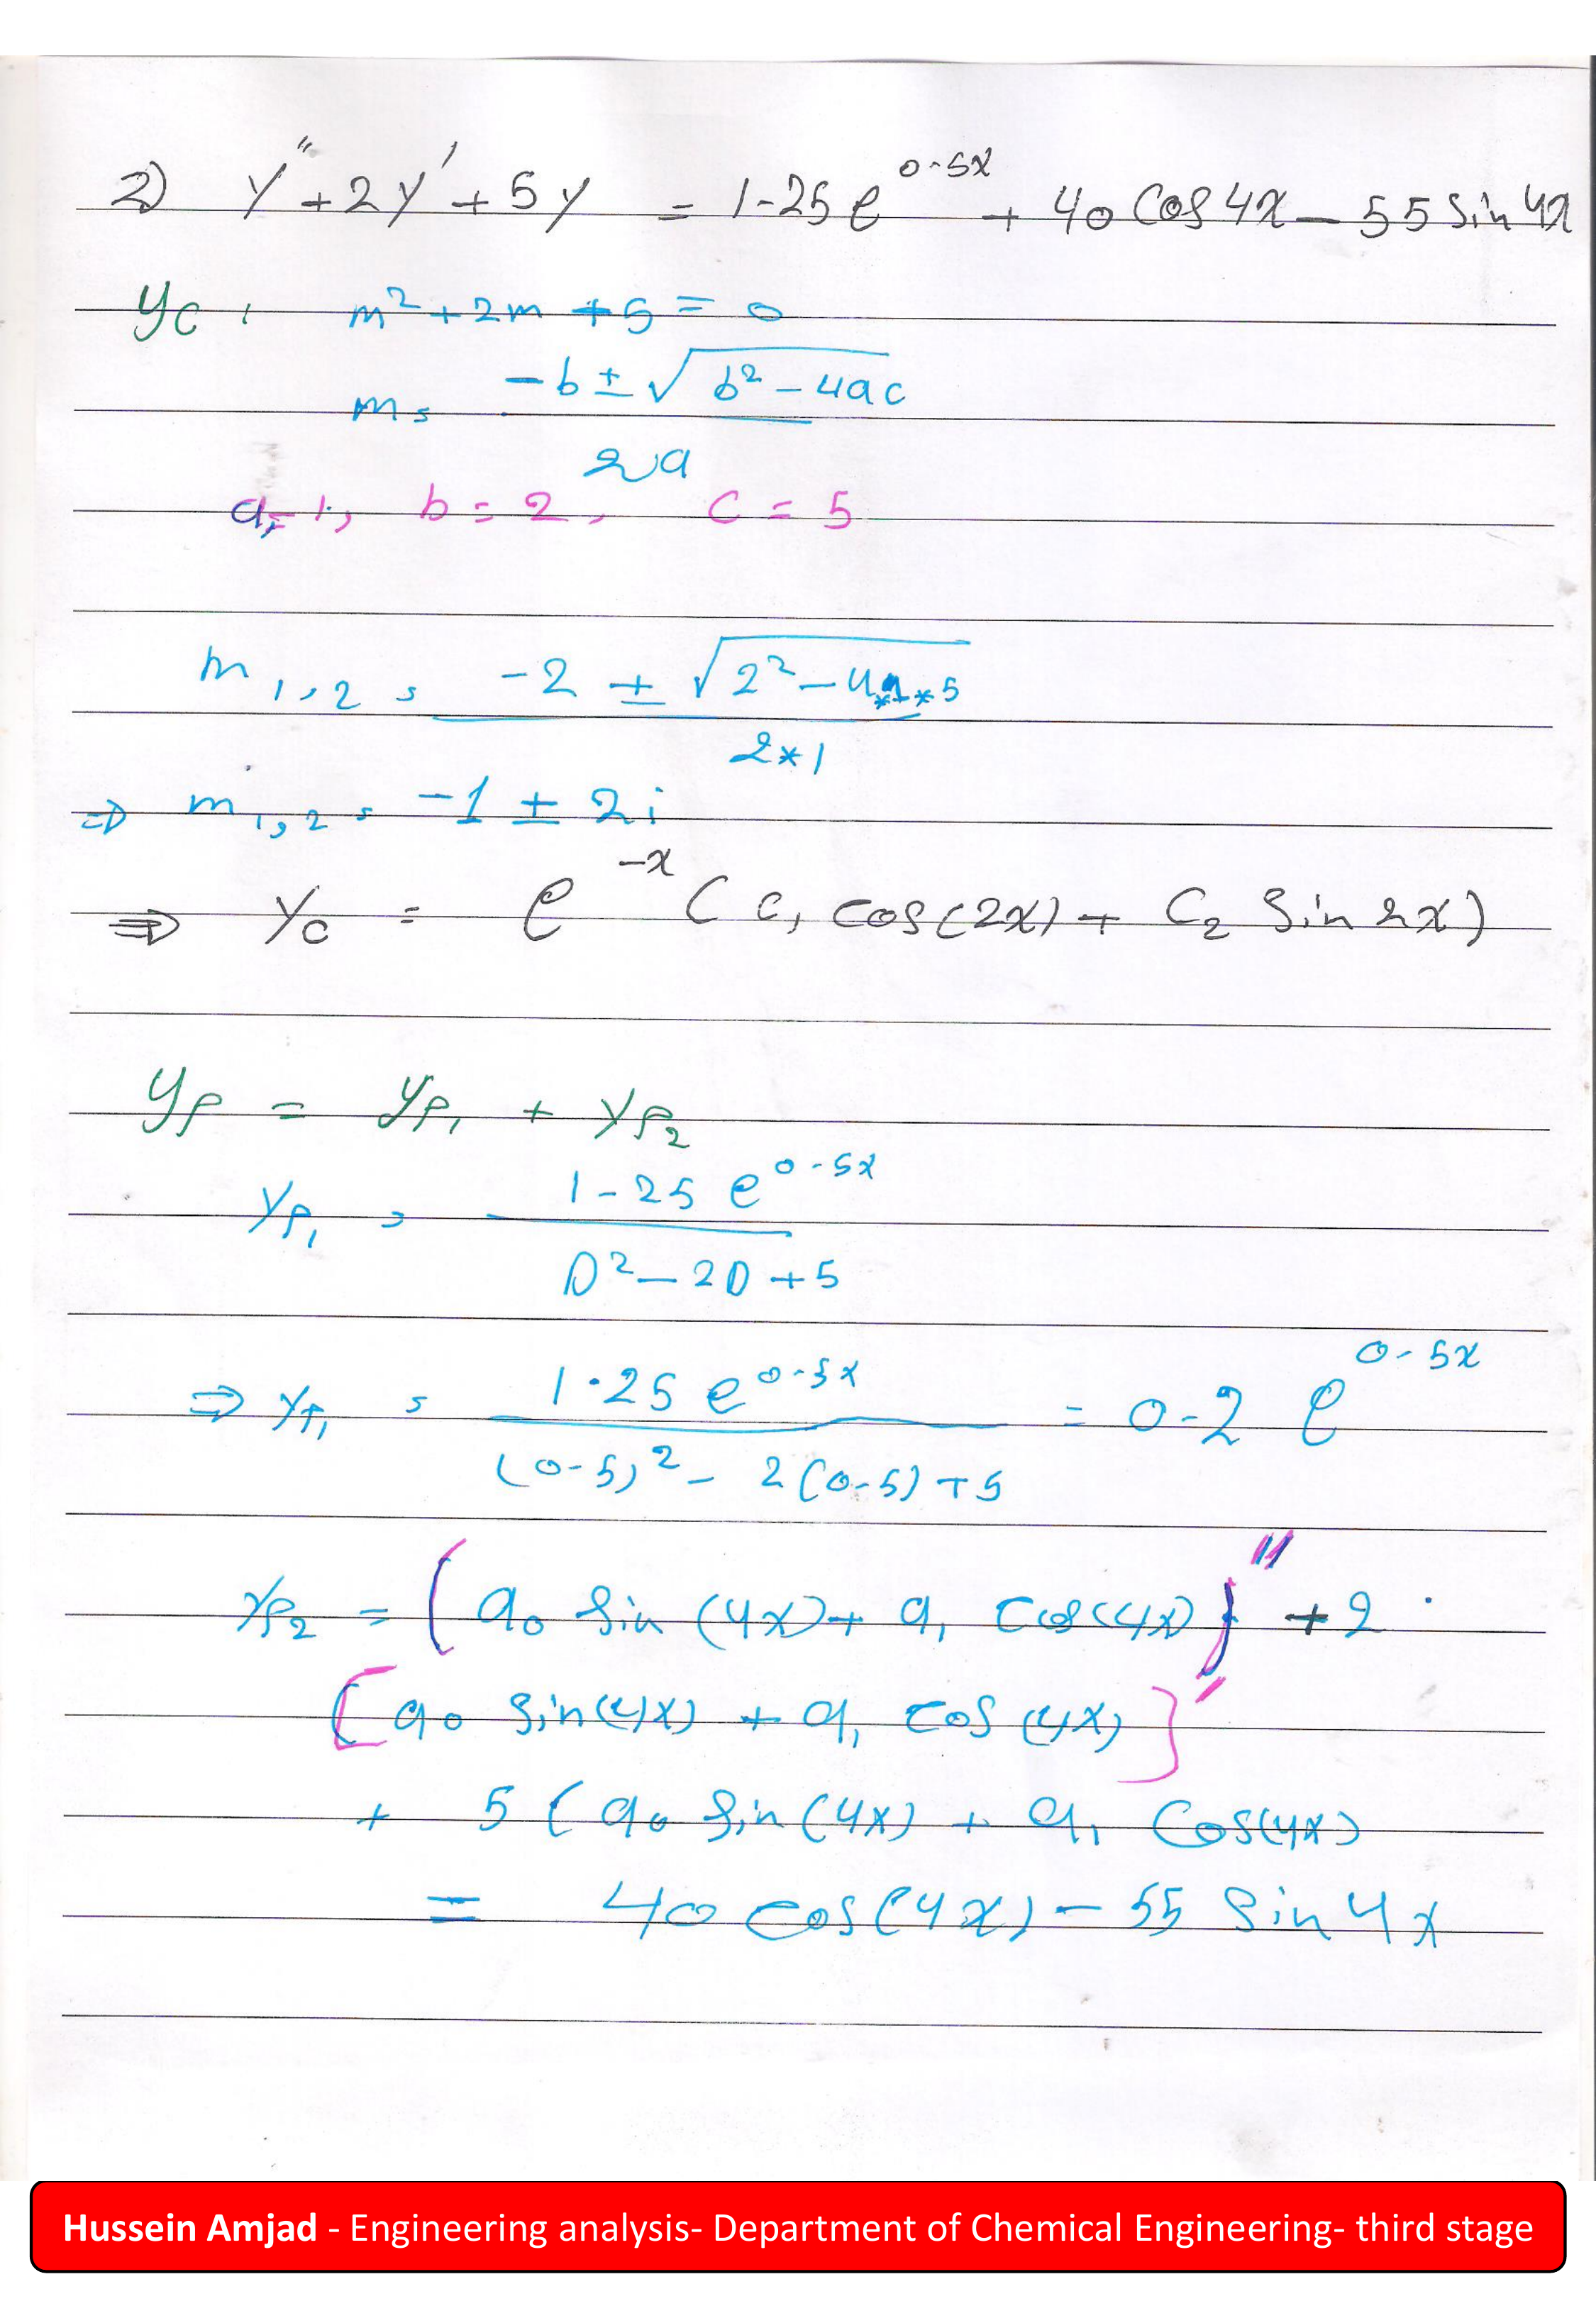 2) y" + 2y' + 5y = 1-25 e^0-5x + 40 Cos 4x - 55 Sin 4x
yc , m² + 2m + 5 = 0
m = -b ± √b² - 4ac / 2a
a = 1, b = 2, C = 5
m 1,2 = -2 ± √2² - 4*1*5 / 2*1
⇒ m 1,2 = -1 ± 2i
⇒ Yc = e^-x ( C1 cos(2x) + C2 Sin 2x)
yp = yp1 + yp2
yp1 = 1-25 e^0-5x / D² - 2D + 5
⇒ yp1 = 1.25 e^0-5x / (0-5)² - 2(0-5) + 5 = 0-2 e^0-5x
yp2 = (a0 Sin (4x) + a1 Cos(4x))" + 2
[a0 Sin(4x) + a1 Cos (4x)]'
+ 5 ( a0 Sin(4x) + a1 Cos(4x)
= 40 Cos(4x) - 55 Sin 4x
Hussein Amjad - Engineering analysis- Department of Chemical Engineering- third stage